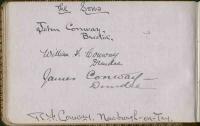 The Sons
John Conway,
William F. Conway
Dundee
James Conway
Dundee
Conway, Newburgh-on-Tay.